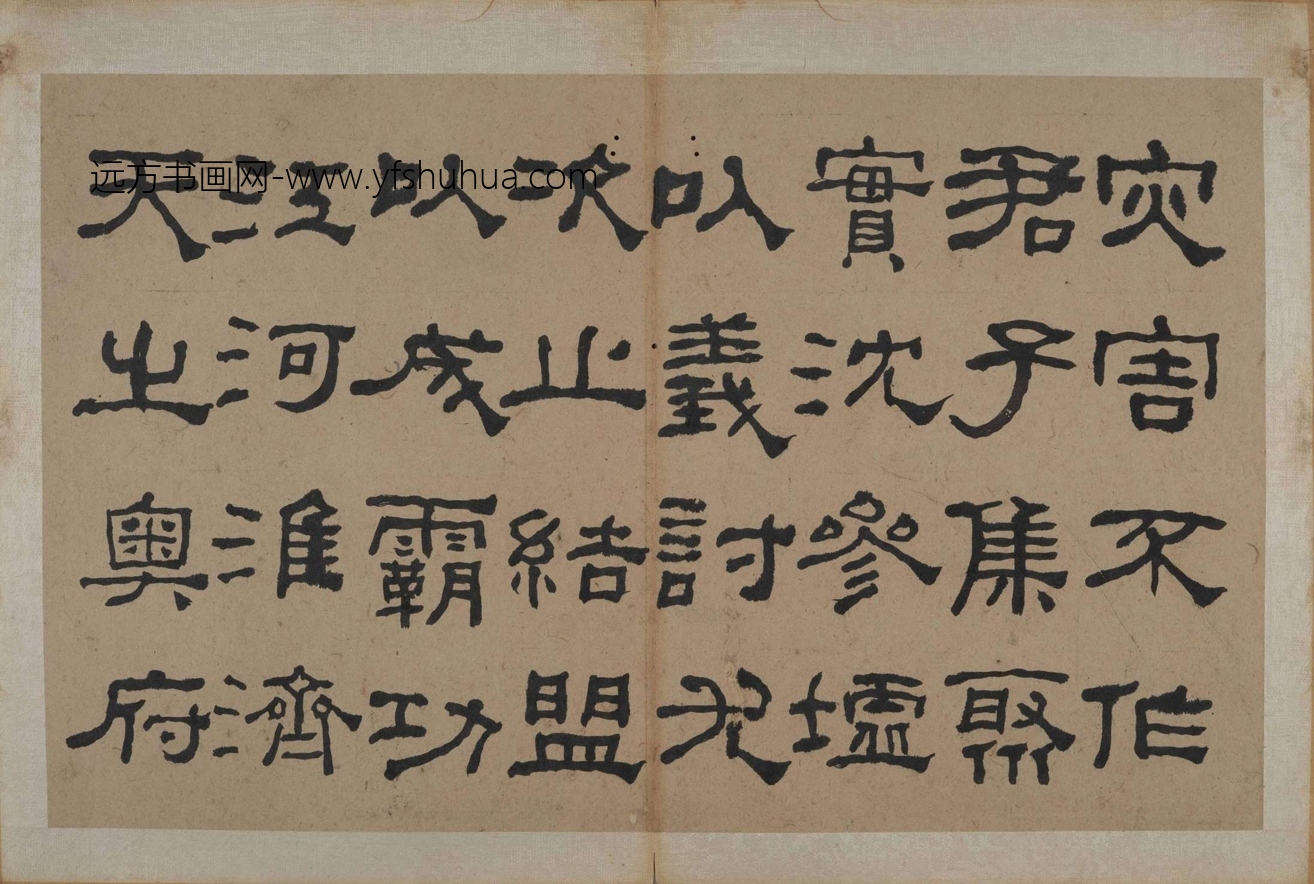 灾害不作
君子集聚
實沈參墟
以義討
次止結盟
以成霸功
江河淮濟
天之奧府
远方书画网-www.yfshuhua.com